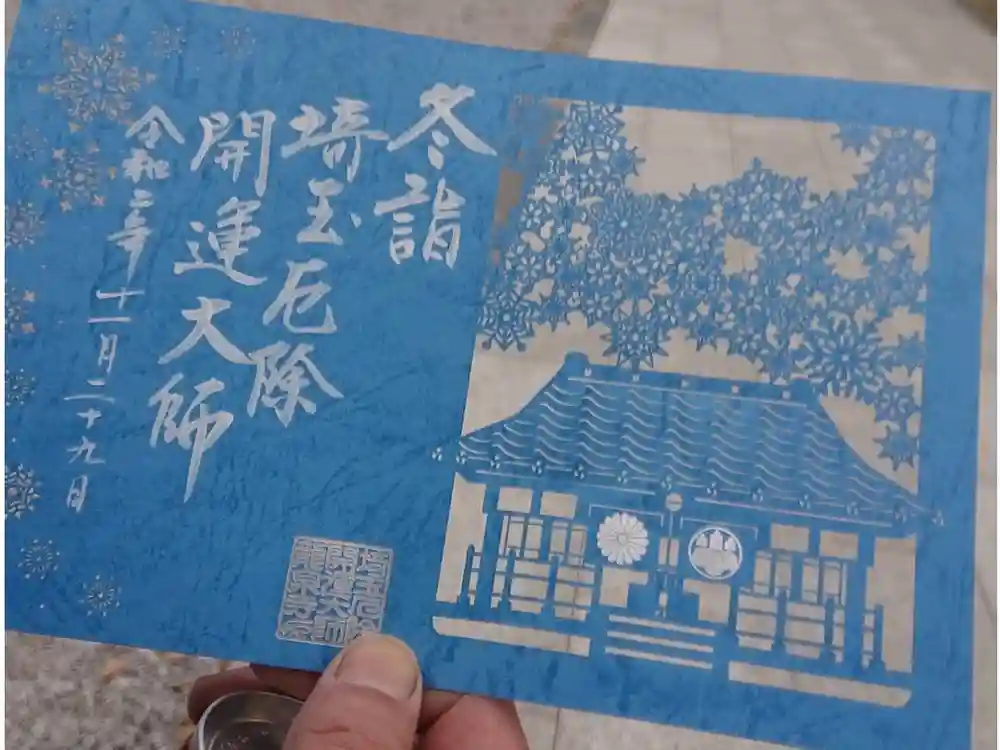 冬詣
埼玉厄除
開運大師
令和二年十一月二十九日
埼玉厄除
開運大師
龍泉寺